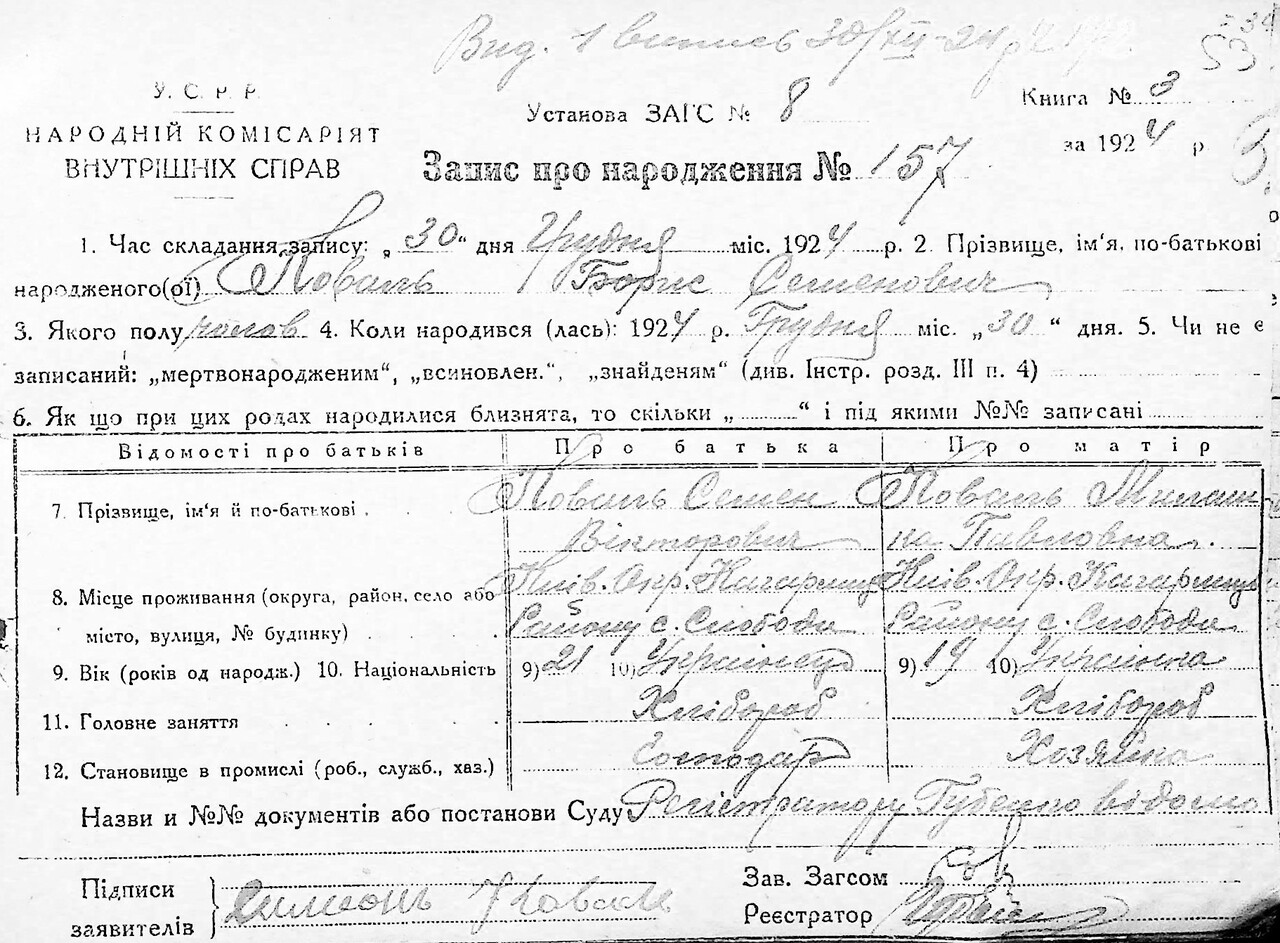 Вид. 1 випись 30/XII-24 р.
53
У. С. Р. Р.
НАРОДНІЙ КОМІСАРІЯТ
ВНУТРІШНІХ СПРАВ
Установа ЗАГС № 8
Книга № 3
за 1924 р.
Запис про народження № 157
1. Час складання запису: „30“ дня Грудня міс. 1924 р. 2. Прізвище, ім'я, по-батькові
народженого(ої) Коваль Борис Семенович
3. Якого полу чолов 4. Коли народився (лась): 1924 р. Грудня міс. „30“ дня. 5. Чи не є
записаний: „мертвонародженим“, „всиновлен.“, „знайденям“ (див. Інстр. розд. III п. 4)
6. Як що при цих родах народилися близнята, то скільки „ “ і під якими №№ записані
Відомості про батьків Про батька Про матір
7. Прізвище, ім'я й по-батькові Коваль Семен Вікторович Коваль Милашка Павловна
8. Місце проживання (округа, район, село або Київ. Окр. Кагарлиц Київ. Окр. Кагарлицк
місто, вулиця, № будинку) Району с. Слободи Району с. Слободи
9. Вік (років од народж.) 10. Національність 9) 21 10) Українець 9) 19 10) Українка
11. Головне заняття Хлібороб Хлібороб
12. Становище в промислі (роб., служб., хаз.) Господар Хозяйка
Назви и №№ документів або постанови Суду Регістратору Губенко відомо
Підписи
заявителів Симеонъ Коваль
Зав. Загсом
Реєстратор